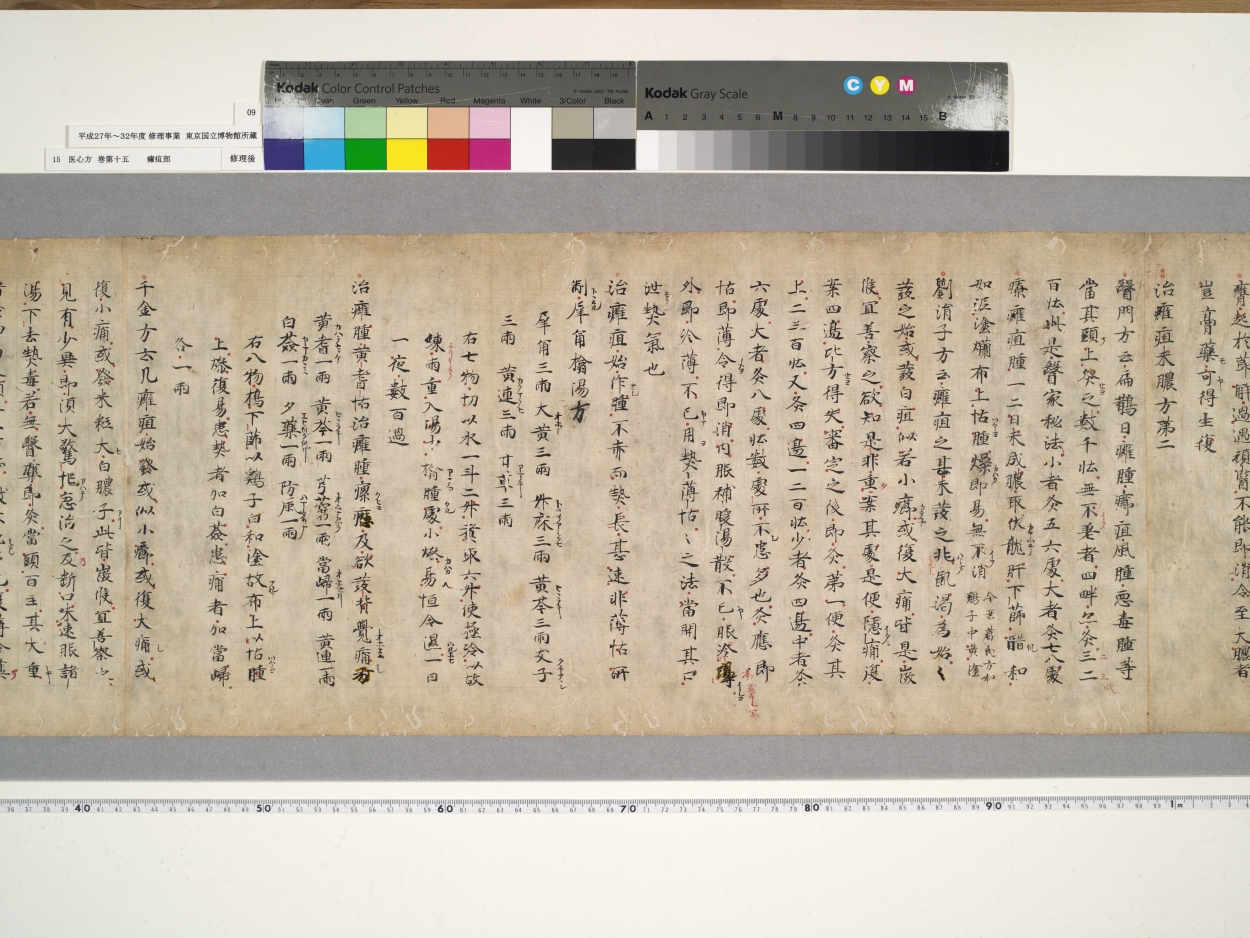 Kodak Color Control Patches
Cyan Green Yellow Red Magenta White 3/Color Black
Kodak Gray Scale
C Y M
A 1 2 3 4 5 6 M 8 9 10 11 12 13 14 15 B
09
平成27年~32年度 修理事業 東京国立博物館所蔵
15 医心方 巻第十五 癰疽部 修理後
豈膏藥可得生復
治癰疽未膿方第二
醫門方云扁鵲曰癰腫癤疽風腫惡毒腫等
當其頭上灸之數千壯無不差者四畔亦灸三二
百壯此是醫家秘法小者灸五六處大者灸七八處
療癰疽腫一二日未成膿取伏龍肝下篩醋和
如泥塗爛布上怗腫燥即易無不消
劉涓子方云癰疽之甚未發之兆飢渴為始
發之始或發白疽似若小癤或復大痛皆是微
候宜善察之欲知是非重案其處是便隱痛復
案四邊比方得失審定之後即灸第一便灸其
上二三百壯又灸四邊一二百壯少者灸四邊中者灸
六處大者灸八處壯數處所不患多也灸應即
怗即薄令得即消內服補暖湯散不已服冷
外即冷薄不已用熱薄怗之法當開其口
泄熱氣也
治癰疽始作腫不赤而熱長甚速非薄怗所
制犀角搨湯方
犀角三兩 大黃三兩 升麻三兩 黃芩三兩 支子
三兩 黃連三兩 甘草三兩
右七物切以水一斗二升 取六升使極冷以故
練兩重入湯中搨腫處小燥易恒令濕一日
一夜數百過
治癰腫黃耆怗治癰腫 及欲發背覺痛方
黃耆一兩 黃芩一兩 芎藭一兩 當歸一兩 黃連一兩
白芷一兩 夕藥一兩 防風一兩
右八物搗下篩以鷄子白和塗故布上以怗腫
上燥復易患熱者加白蘞患痛者加當歸
各一兩
千金方云凡癰疽始發或似小癤或復大痛或
復小痛或發米粒大白膿子此皆微候宜善察之
見有少異即須大驚忙急治之及斷口味速服諸
湯下去熱毒若無醫藥即灸當頭百壯其大重
40 50 60 70 80 90 1m